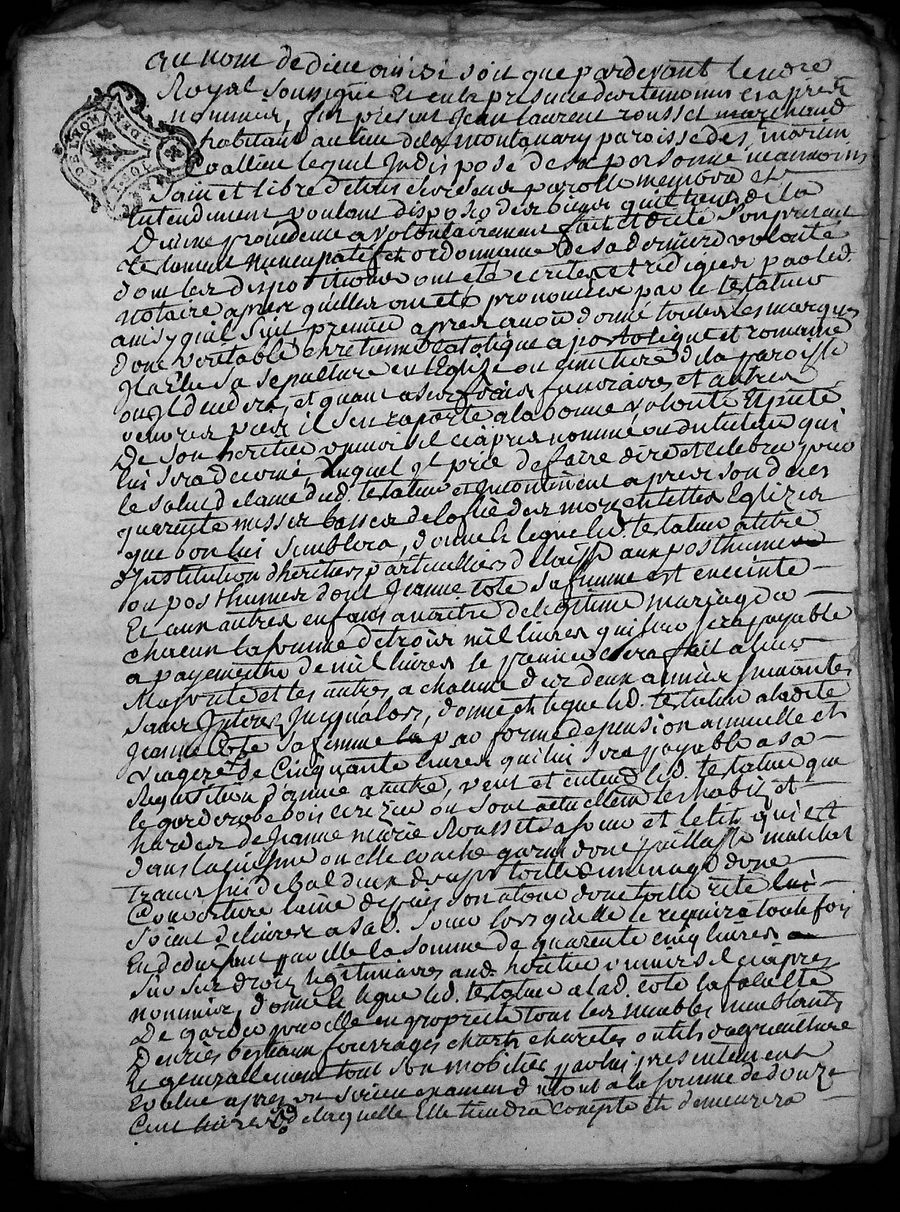 au nom de dieu ainsi soit que pardevant le notre
Royal soussigné et en la presence des temoins cy apres
nommes, fut present Jean laurent rousset marchand
habitant au lieu de la montguary paroisse des
lequel Indisposé de sa personne neanmoins
sain et libre de tous ses sens parolle memoire et
entendement voulant disposer des biens quil tient de la
Divine providence a volontairement fait et dicté son present
testament nuncupatif et ordonnance de sa derniere volonté
dont les dispositions ont eté ecrites et redigées par led.
notaire apres quelles ont eté prononcées par le testateur
ainsy quil suit premier apres avoir donné toutes les marques
dun veritable chretienne catolique apostolique et romaine
Il a Elu sa sepulture en leglise ou cimetiere de la paroisse
ou Il decedera, et quant a ses frais funeraires et autres
œuvres pies il sen raporte a la bonne volonté Et pieté
De son heritier universel ciapres nommé ou du tuteur qui
lui sera decerné, duquel Il prie de faire dire et celebrer pour
le salut de lame dud. testateur et Incontinent apres son deces
quarente messes basses de lofice des mors et telles Eglizes
que bon lui semblera, donne et legue led. testateur a titre
dInstitution dheritiers particuliers et delaisse aux posthume
ou posthumes dont Jeanne cote sa femme est enceinte
Et aux autres enfans a naitre de legitime mariage a
chacun la somme de trois mil livres qui leur sera payable
a payements de mil livres le premier sera fait a leur
Majorité et les autres a chacune des deux années suivantes
sans Interet Jusqualors, donne et legue led. testateur a ladite
Jeanne Cote sa femme par forme de pension annuelle et
viagere de Cinquante livres qui lui sera payable a sa
Requisition d'année a autre, veut et entend led. testateur que
le garderobe bois cerizier ou sont actuellement les habits et
hardes de Jeanne marie Rousset sa sœur et le lit qui est
dans la cuisine ou elle couche garni dune paillasse matelat
travercin de bal deux draps toille de menage dune
Couverture laine du pays son tour dune toille reté
soient delivres a sad. sœur lorsquelle le requira toute fois
En deduisant par elle la somme de quarente cinq livres
sur ses droits legitimaires aud. heritier universel ciapres
nommé, donne et legue led. testateur a lad. cote la faculté
De garder pour elle en proprieté tous les meubles meublants
Denrées bestiaux fourrages chards charetes outils dagriculture
Et generallement tout son mobilier par lui presentement
Evalué apres un serieux examen du tout a la somme de douze
Cent livres de laquelle Elle tiendra compte et demeurera